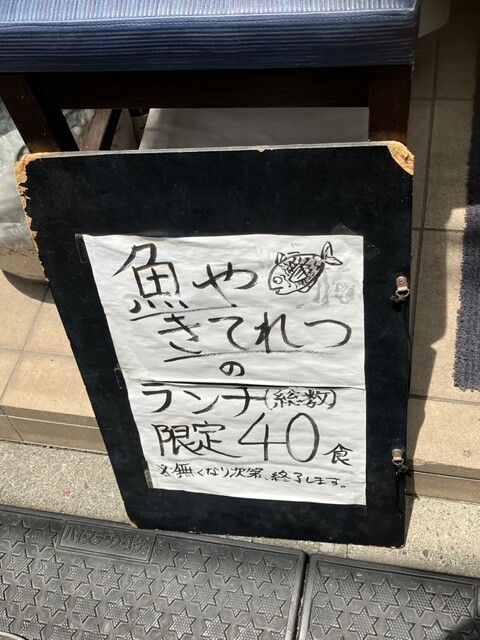 魚や
きてれつ
の
ランチ(総数)
限定40食
※無くなり次第、終了します。